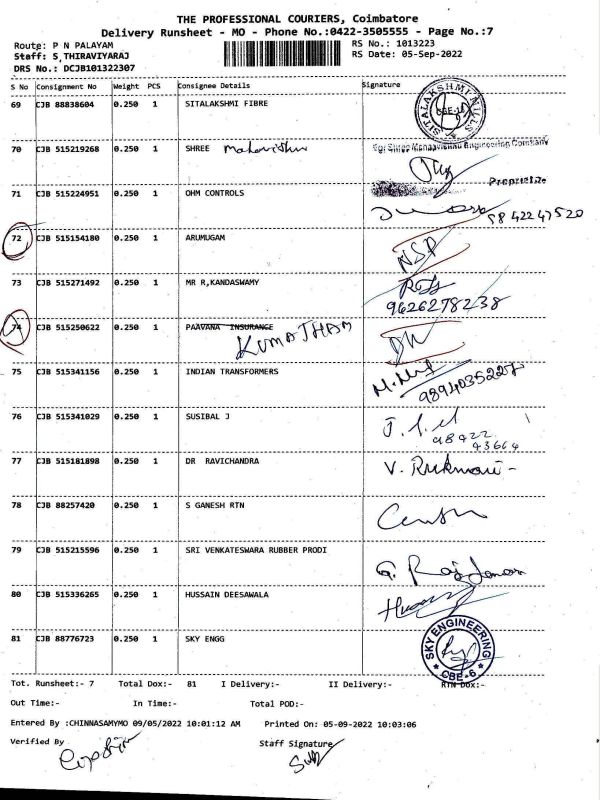 THE PROFESSIONAL COURIERS, Coimbatore
Delivery Runsheet - MO - Phone No.:0422-3505555 - Page No.:7
Route: P N PALAYAM RS No.: 1013223
Staff: S,THIRAVIYARAJ RS Date: 05-Sep-2022
DRS No.: DCJB101322307
S No Consignment No Weight PCS Consignee Details Signature
69 CJB 88838604 0.250 1 SITALAKSHMI FIBRE
SITALAKSHMI MILLS
70 CJB 515219268 0.250 1 SHREE Mahavishnu
Engineering Company
71 CJB 515224951 0.250 1 OHM CONTROLS
Proprietor
9842247520
72 CJB 515154180 0.250 1 ARUMUGAM
NSP
73 CJB 515271492 0.250 1 MR R,KANDASWAMY
9626278238
74 CJB 515250622 0.250 1 PAAVANA INSURANCE
75 CJB 515341156 0.250 1 INDIAN TRANSFORMERS
76 CJB 515341029 0.250 1 SUSIBAL J
98422
43664
77 CJB 515181898 0.250 1 DR RAVICHANDRA
V. Rukmani
78 CJB 88257420 0.250 1 S GANESH RTN
79 CJB 515215596 0.250 1 SRI VENKATESWARA RUBBER PRODI
80 CJB 515336265 0.250 1 HUSSAIN DEESAWALA
81 CJB 88776723 0.250 1 SKY ENGG
SKY ENGINEERING
CBE-6
Tot. Runsheet:- 7 Total Dox:- 81 I Delivery:- II Delivery:- RTN Dox:-
Out Time:- In Time:- Total POD:-
Entered By :CHINNASAMYMO 09/05/2022 10:01:12 AM Printed On: 05-09-2022 10:03:06
Verified By Staff Signature